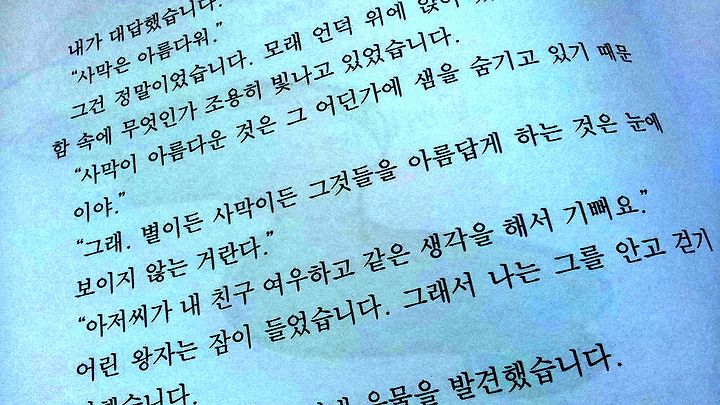 내가 대답했습니다.
“사막은 아름다워.”
그건 정말이었습니다. 모래 언덕 위에 앉아
함 속에 무엇인가 조용히 빛나고 있었습니다.
“사막이 아름다운 것은 그 어딘가에 샘을 숨기고 있기 때문
이야.”
“그래. 별이든 사막이든 그것들을 아름답게 하는 것은 눈에
보이지 않는 거란다.”
“아저씨가 내 친구 여우하고 같은 생각을 해서 기뻐요.”
어린 왕자는 잠이 들었습니다. 그래서 나는 그를 안고 걷기
했습니다.
우물을 발견했습니다.